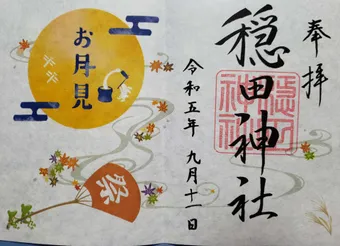 奉拝
穏田神社
令和五年 九月十一日
お月見
祭